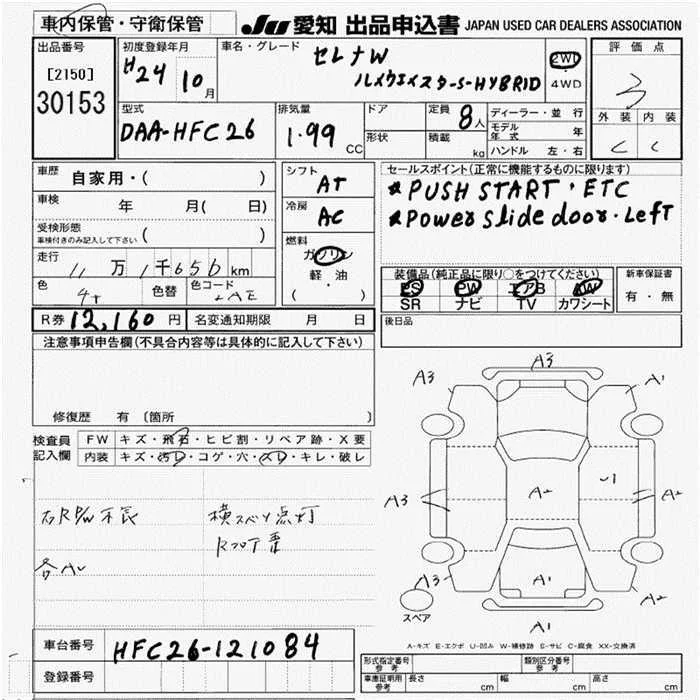 車内保管・守衛保管 JU 愛知 出品申込書 JAPAN USED CAR DEALERS ASSOCIATION
出品番号
[2150]
30153
初度登録年月
H24 10月
車名・グレード
セレナW
S-HYBRID
2WD
4WD
評価点
3
外装 内装
C C
型式
DAA-HFC26
排気量
1.99 CC
ドア
形状
定員 8人
積載 kg
ディーラー・並行
モデル年式 年
ハンドル 左・右
車歴 自家用・( )
車検 年 月( 日)
受検形態
車検付きのみ記入して下さい ( )
走行 11万1千656km
色 色替 色コード
シフト AT
冷房 AC
燃料
ガソリン
軽・油
( )
セールスポイント(正常に機能するものに限ります)
*PUSH START・ETC
*Power slide door・Left
装備品(純正品に限り○をつけてください)
PS PW エアB AW
SR ナビ TV カワシート
新車保証書
有・無
R券 12,160円 名変通知期限 月 日
後日品
注意事項申告欄(不具合内容等は具体的に記入して下さい)
修復歴 有 〔箇所 〕
検査員記入欄
FW キズ・飛石・ヒビ割・リペア跡・X要
内装 キズ・汚レ・コゲ・穴・スレ・キレ・破レ
右RP/W不良 横スベリ点灯
A3
A3 A1
A3 A2 A2
A3 A1 A2
A1
スペア
A-キズ E-エクボ U-凹み W-補修跡 S-サビ C-腐食 XX-交換済
車台番号 HFC26-121084
登録番号
形式指定番号 参考 類別区分番号 参考
車庫証明用 参考 長さ cm 幅 cm 高さ cm